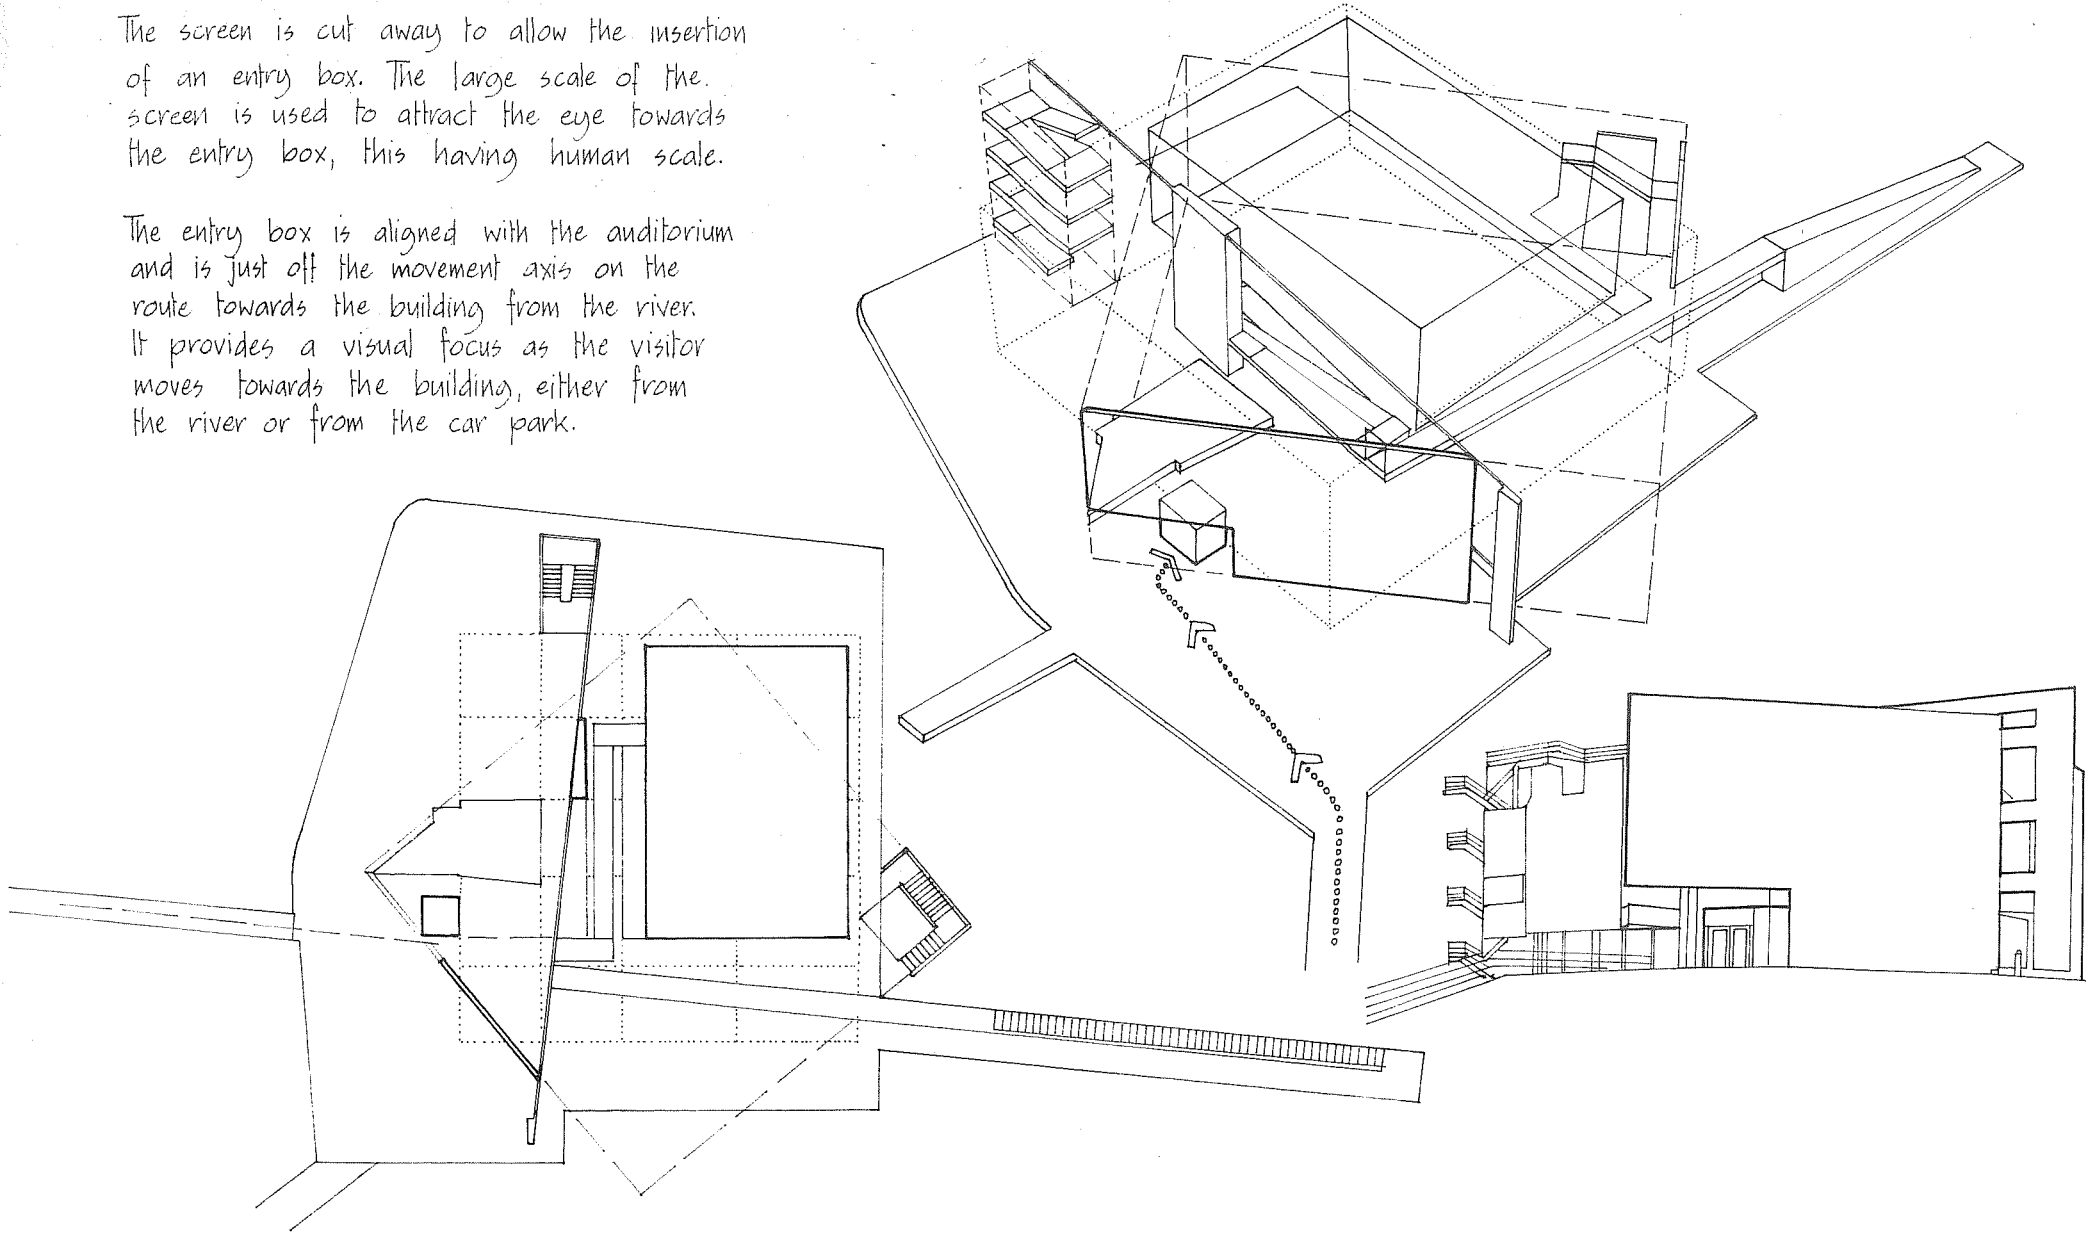 The screen is cut away to allow the insertion
of an entry box. The large scale of the
screen is used to attract the eye towards
the entry box, this having human scale.
The entry box is aligned with the auditorium
and is just off the movement axis on the
route towards the building from the river.
It provides a visual focus as the visitor
moves towards the building, either from
the river or from the car park.